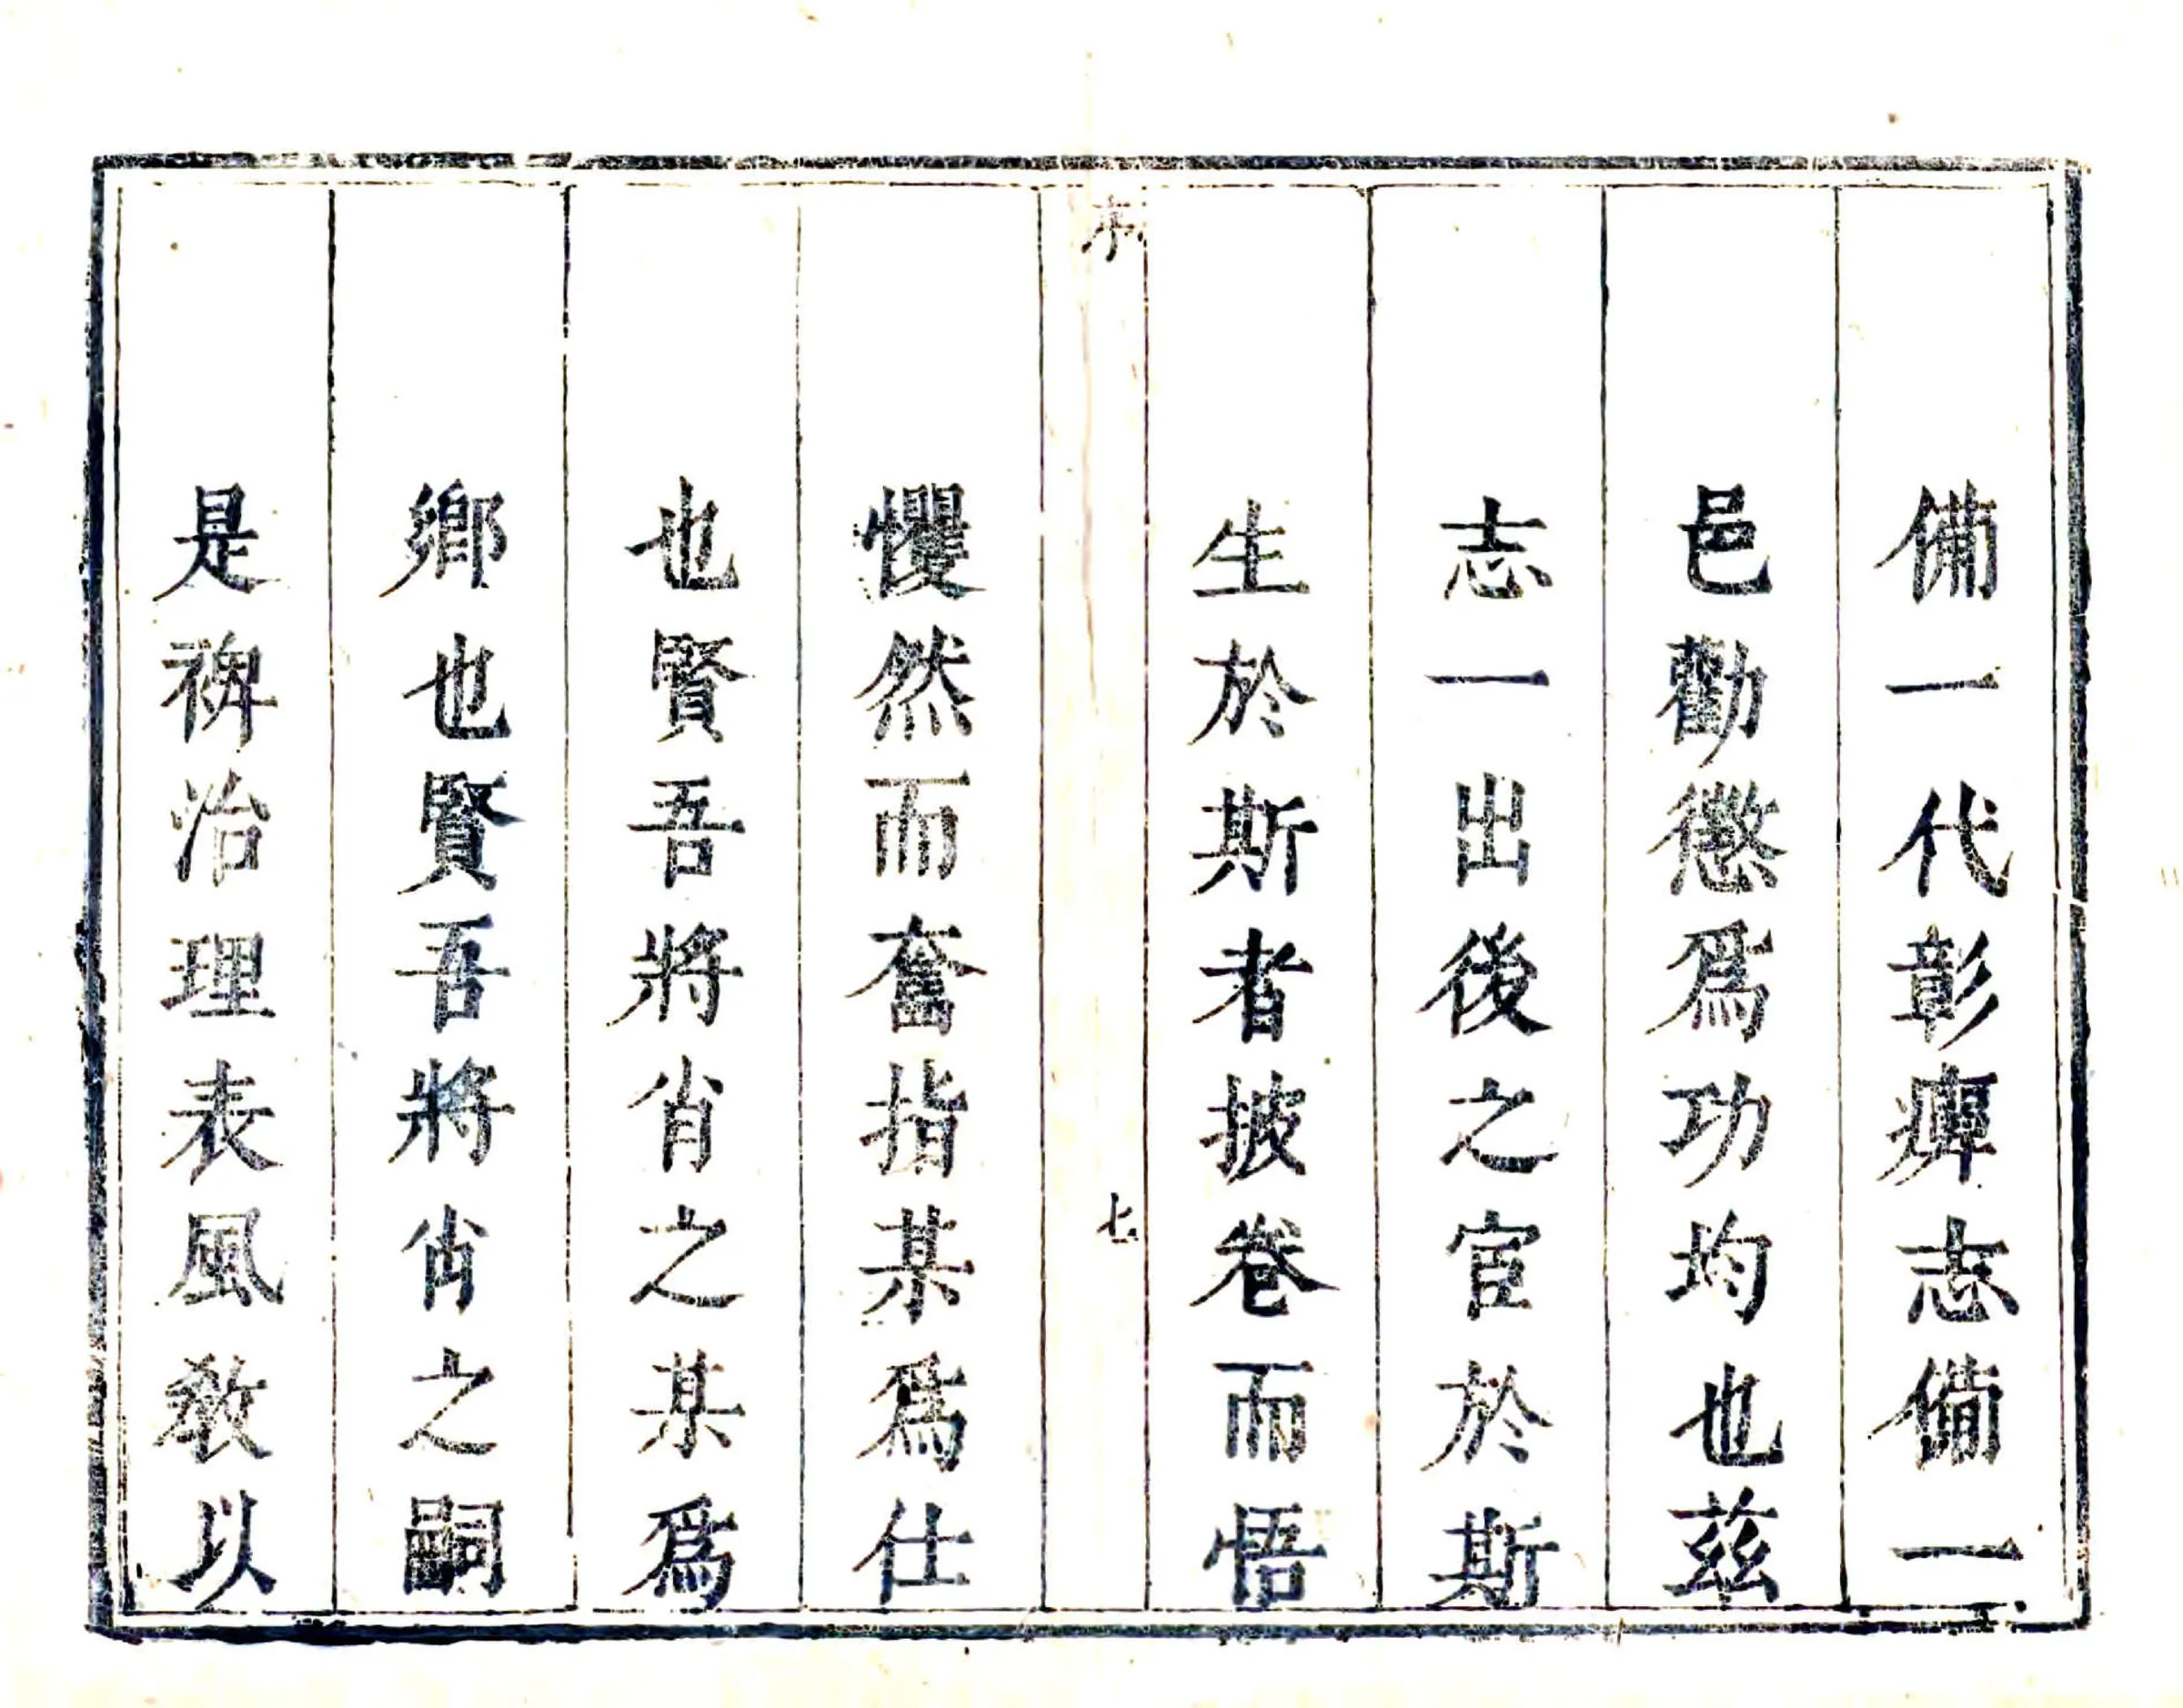 備一代彰癉志備一
邑勸懲爲功均也茲
志一出後之宦於斯
生於斯者披卷而悟
序
七
懼然而奮指某爲仕
也賢吾將肖之某爲
鄉也賢吾將肖之嗣
是裨治理表風教以